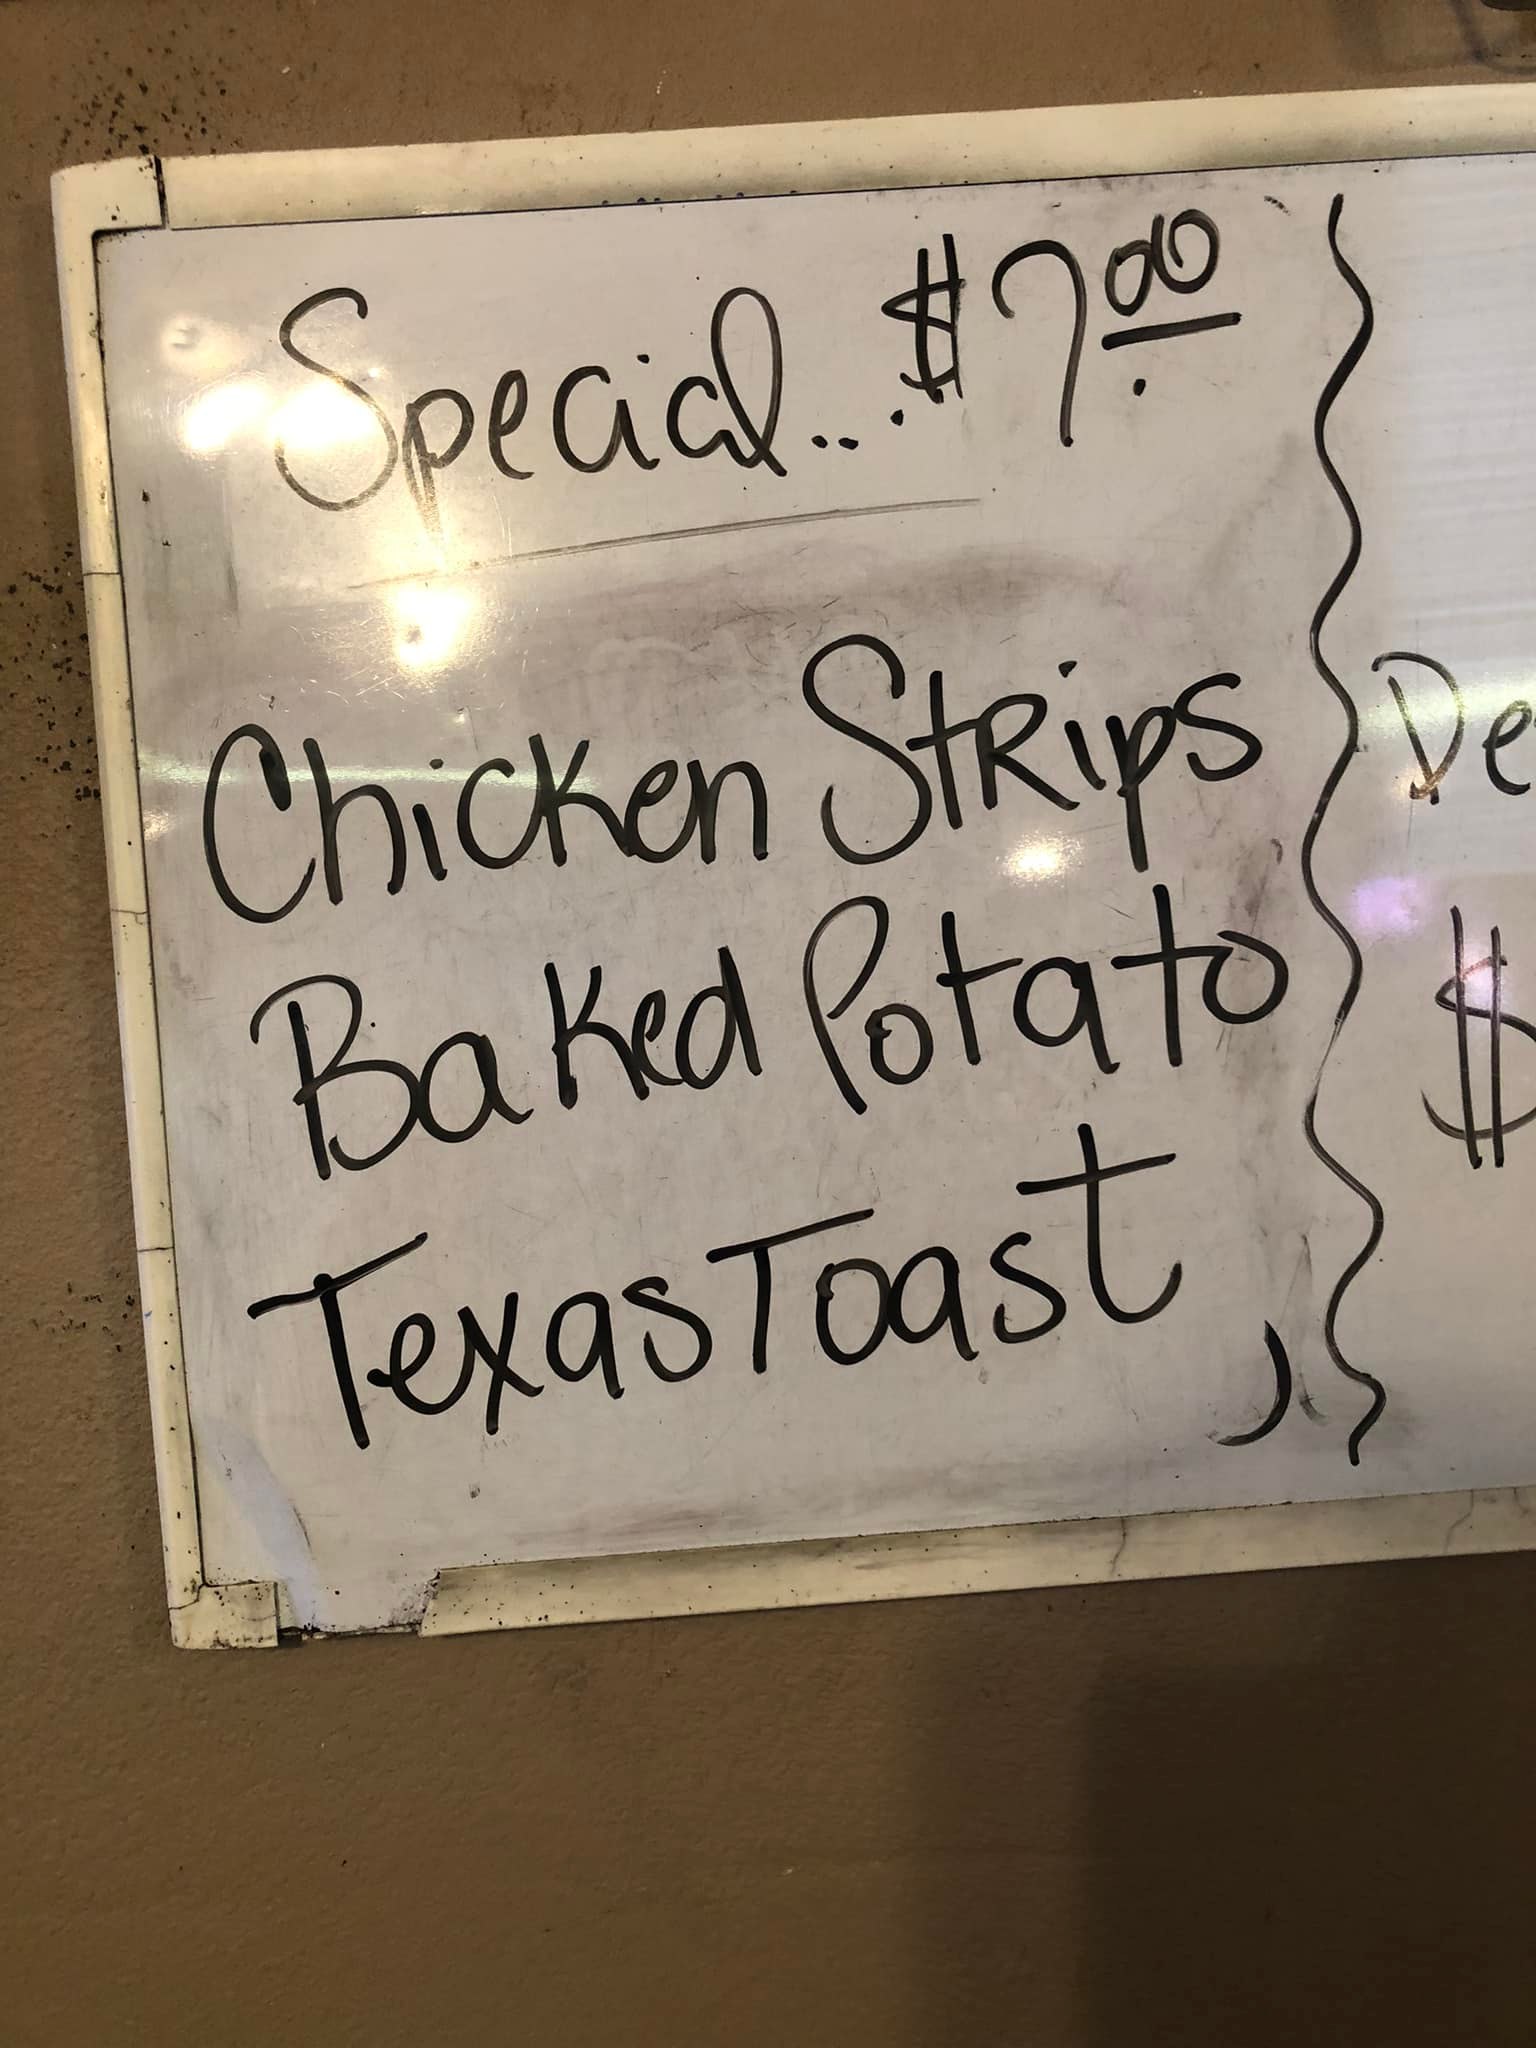 Special... $7.00
Chicken Strips
Baked Potato
Texas Toast
$